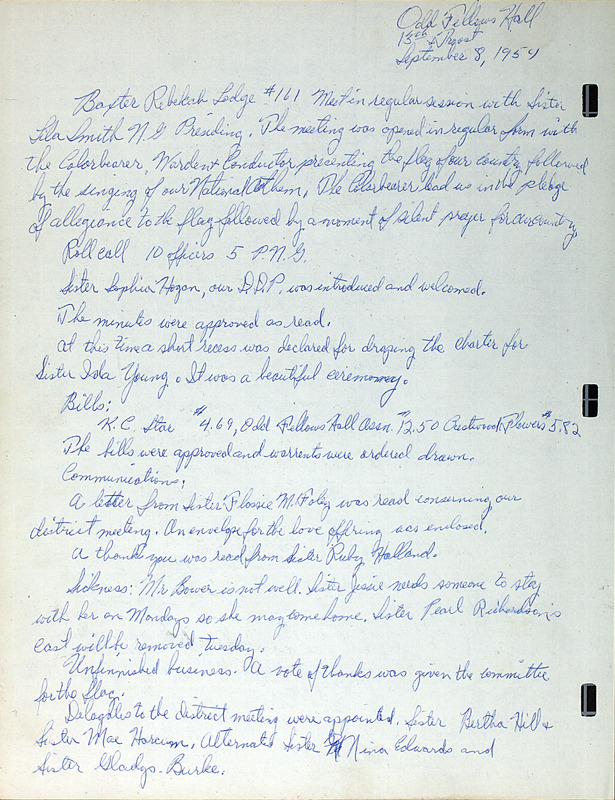 Odd Fellows Hall
13th & Troost
September 8, 1954
Baxter Rebekah Lodge #161 Met in regular session with Sister
Lela Smith N G Presiding. The meeting was opened in regular form with
the Colorbearer, Warden & Conductor presenting the flag of our country followed
by the singing of our National Anthem, The Colorbearer lead us in the pledge
of allegiance to the flag followed by a moment of silent prayer for our country.
Roll call 10 officers 5 P.N.G.
Sister Sophia Hogan, our D.D.P. was introduced and welcomed.
The minutes were approved as read.
At this time a short recess was declared for draping the charter for
Sister Ida Young. It was a beautiful ceremoney.
Bills:
K.C. Star #4.69, Odd Fellows Hall Assn. #12.50 Crestwood Flowers #5.82
The bills were approved and warrents were ordered drawn.
Communications:
A letter from Sister Flossie M. Foley was read conserning our
district meeting. An envelope for the love offring was enclosed.
A thank you was read from Sister Ruby Holland.
Sickness: Mr Bower is not well. Sister Jessie needs someone to stay
with her on Mondays so she may come home. Sister Pearl Richardson's
cast will be removed Tuesday.
Unfinnished business. A vote of thanks was given the committe
for the flag.
Delagates to the district meeting were appointed. Sister Bertha Hill &
Sister Mae Harcum, Alternates Sister Nina Edwards and
Sister Gladys Burke.